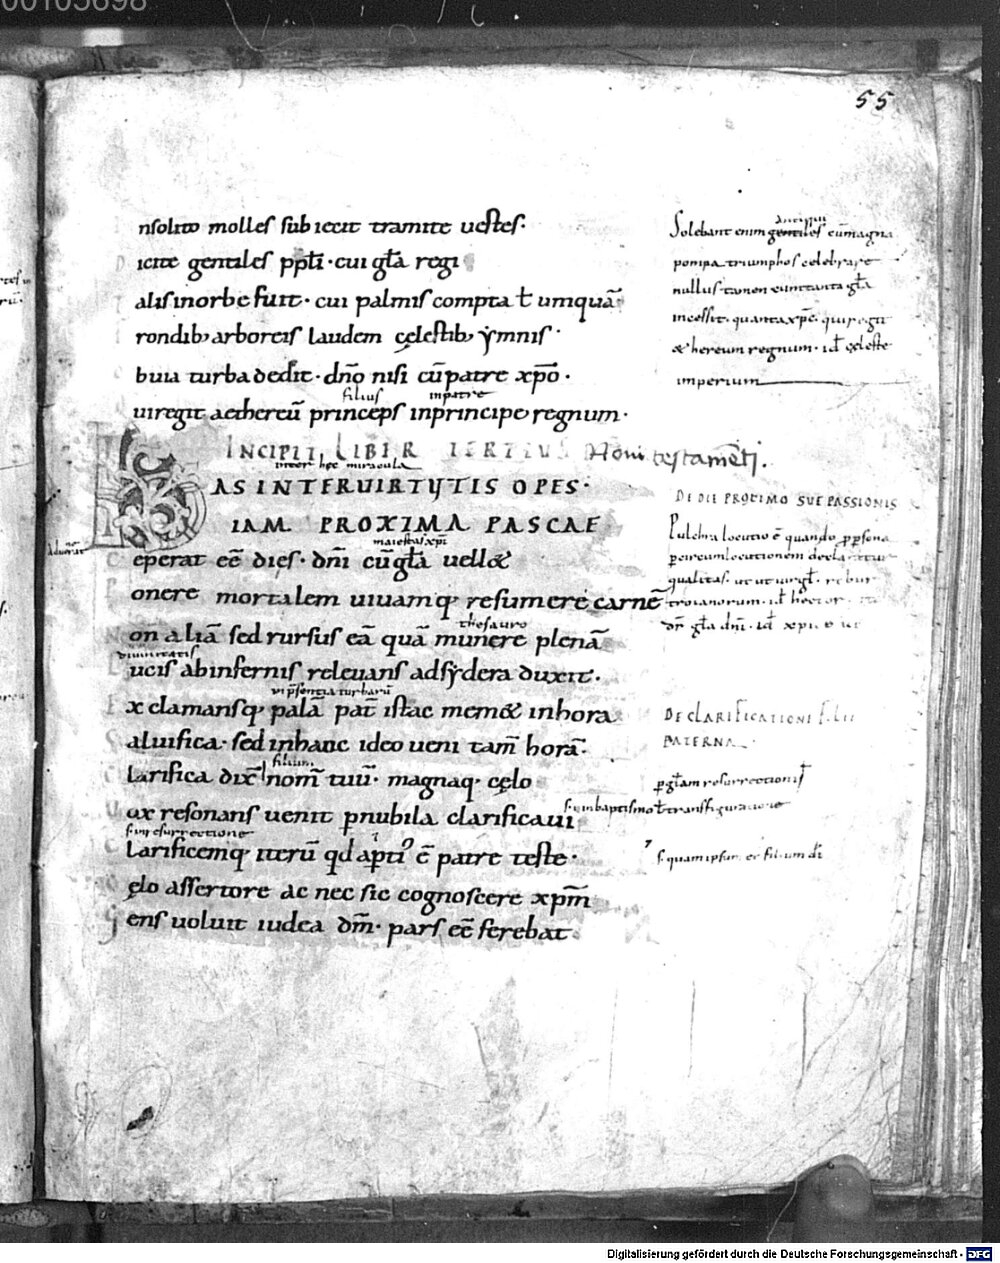 00105698
55
nsolito molles subiecit tramite uestes·
icite gentiles ppłi· cui gła regi
alis in orbe fuit· cui palmis compta ł umquā
rondib; arboreis laudem cęlestib; ẏmnis·
buia turba dedit· dn̄o nisi cū patre xp̄o·
filius inpatre
ui regit aethereū princeps in principe regnum·
INCIPIT LIBER TERTIUS Noui testam̄eti.
inter hec miracula
HAS INTER VIRTUTIS OPES·
IAM PROXIMA PASCAE
maiestas xp̄i
Ceperat eē dies· dn̄i cū gła uell&
Ponere mortalem uiuamq; resumere carnē
thesauro
Non aliā sed rursus eā quā munere plenā
diuinitatis
Lucis ab infernis releuans ad sẏdera duxit·
in p̄sentia turbarū
Exclamansq; palā pat̄ istac mem& in hora
Saluifica· sed in hanc ideo ueni tam̄ horā·
filium
Clarifica dix̄ nom̄ tuū· magnaq; cęlo
Uox resonans uenit p nubila clarificaui
s· in resurrectione
Clarificemq; iterū qd apti⁹ ē patre teste·
Cęlo assertore ac nec sic cognoscere xp̄m̄
Gens uoluit iudea dm̄· pars eē ferebat·
antiqui
Solebant enim gentiles cū magna
pompa triumphos celebrare
nullus tamen cum tanta gła
incessit· quanta xp̄c· qui regit
&hereum regnum· id̄ cęleste
imperium
DE DIE PROXIMO SUE PASSIONIS
Pulchra locutio ē quando p psona
qualitas· ut
troianorum· id̄ hector·
gła dn̄i· id̄ xp̄i
DE CLARIFICATIONE FILII
PATERNA
p głam resurrectionis
s· in baptismo ł transfiguratione
s· quam ipsum ee filium dī
Digitalisierung gefördert durch die Deutsche Forschungsgemeinschaft - DFG